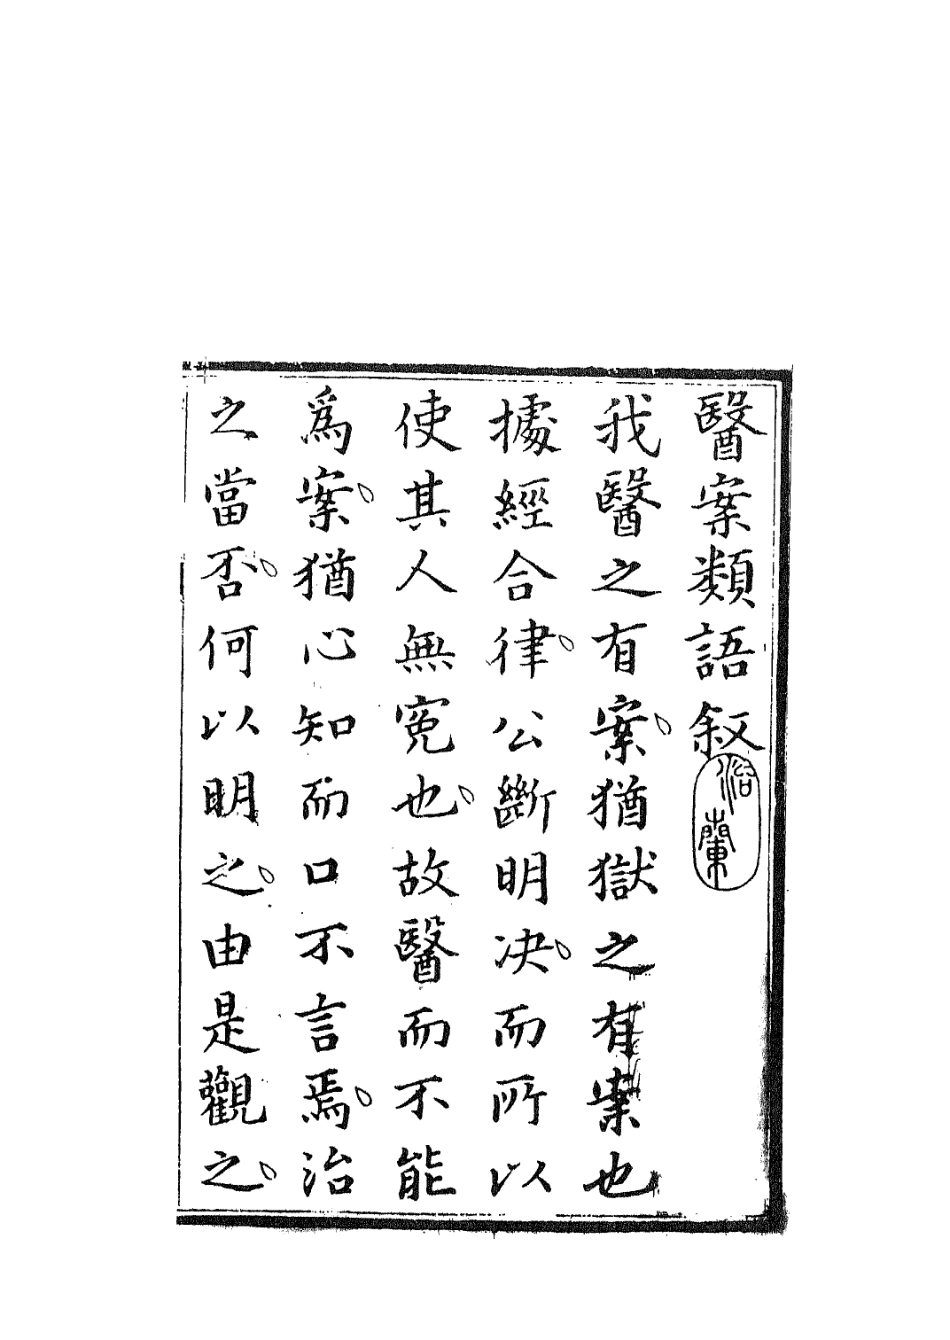 醫案類語叙
我醫之有案猶獄之有案也
據經合律公斷明决而所以
使其人無寃也故醫而不能
爲案猶心知而口不言焉治
之當否何以明之由是觀之